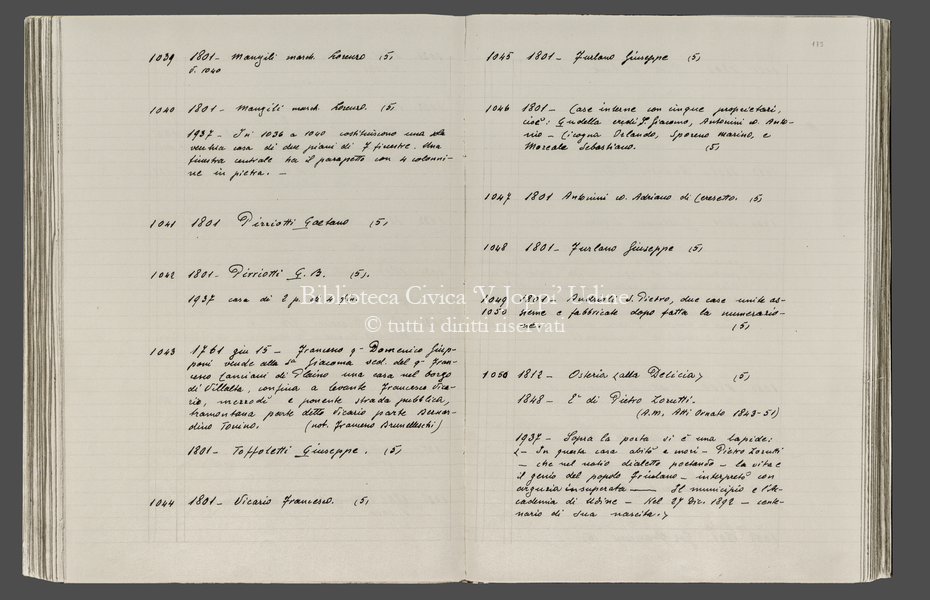 1039 1801 - Mangili march. Lorenzo (5)
V. 1040
1040 1801 - Mangili march. Lorenzo. (5)
1937 - I n.i 1036 a 1040 costituiscono una
vecchia casa di due piani di 7 finestre. Una
finestra centrale ha il parapetto con 4 colonni-
ne in pietra. -
1041 1801 Pirriotti Gaetano (5)
1042 1801 - Pirriotti G. B. (5).
1937 casa di 2 p.
1043 1761 giu 15 - Francesco q. Domenico
vende alla Giacoma ved. del q. Fran-
cesco Canciani di Plaino una casa nel borgo
di Villalta, confina a levante Francesco Vica-
rio, mezzodì e ponente strada pubblica,
tramontana parte detto Vicario parte Bernar-
dino Tonino. (not. Francesco Brunelleschi)
1801 - Toffoletti Giuseppe. (5)
1044 1801 - Vicario Francesco. (5)
133
1045 1801 - Furlano Giuseppe (5)
1046 1801 - Case interne con cinque proprietari,
cioè: Gudella eredi Giacomo, Antonini co. Anto-
nio - Cicogna Orlando, Sporeno Marino, e
Morcale Sebastiano. (5)
1047 1801 Antonini co. Adriano di Ceresetto. (5)
1048 1801 - Furlano Giuseppe (5)
1049 1801 - Pietro, due case unite as-
1050 sieme e fabbricate dopo fatta la numerazio-
ne. (5)
1050 1812 - Osteria <alla Delicia> (5)
1848 - E' di Pietro Zorutti.
(A.M. Atti Ornato 1843-51)
1937 - Sopra la porta vi è una lapide:
<- In questa casa abitò e morì - Pietro Zorutti
- che nel natio dialetto poetando - la vita e
il genio del popolo Friulano - interpretò con
arguzia insuperata - Il municipio e l'Ac-
cademia di Udine - Nel 27 Dic. 1892 - cente-
nario di sua nascita.>
Biblioteca Civica 'V. Joppi' Udine
© tutti i diritti riservati